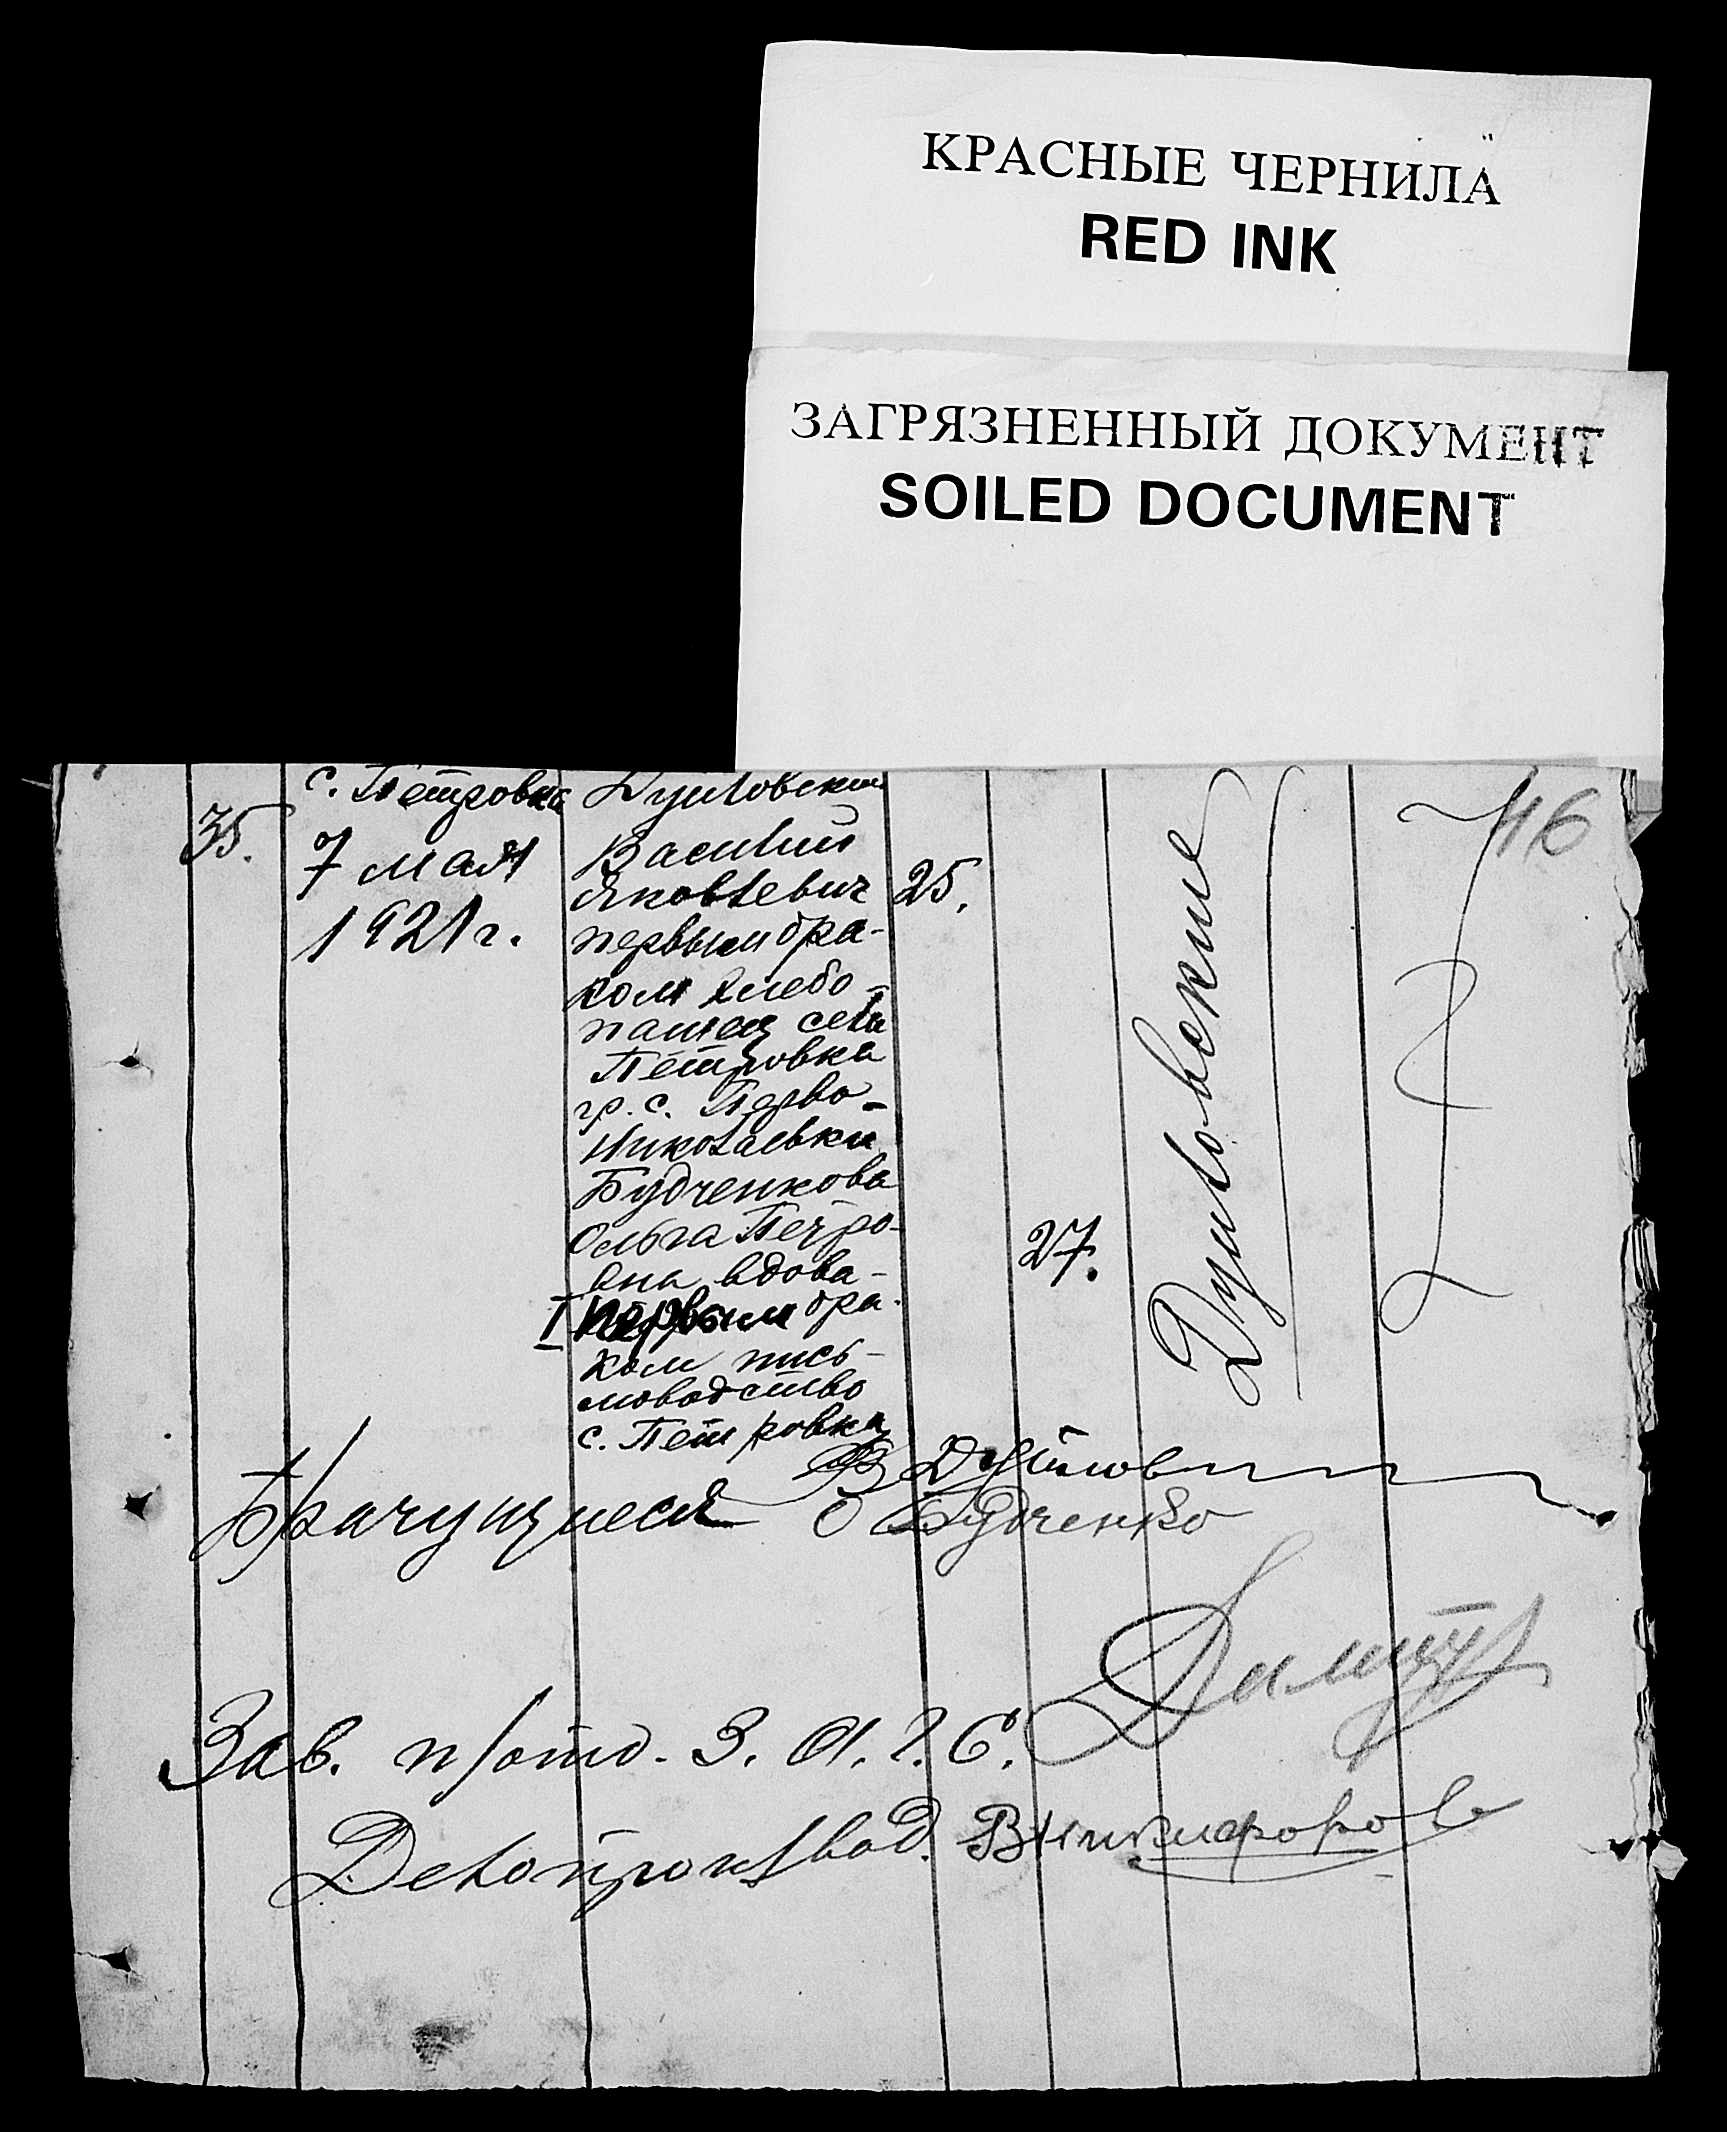 КРАСНЫЕ ЧЕРНИЛА
RED INK
ЗАГРЯЗНЕННЫЙ ДОКУМЕНТ
SOILED DOCUMENT
116
35.
с. Петровка
7 мая
1921 г.
Душловский
Василий
Яковлевич
первым бра-
ком хлебо-
пашец села
Петровка
гр. с. Перво-
Николаевки
Будченкова
Ольга Петро-
вна вдова-
I первым бра-
ком пись-
моводство
с. Петровка
25.
27.
Душловские
Брачущиеся
О Будченко
Зав. п/отд. З. А. Г. С.
Делопроизвод. В Никифоров